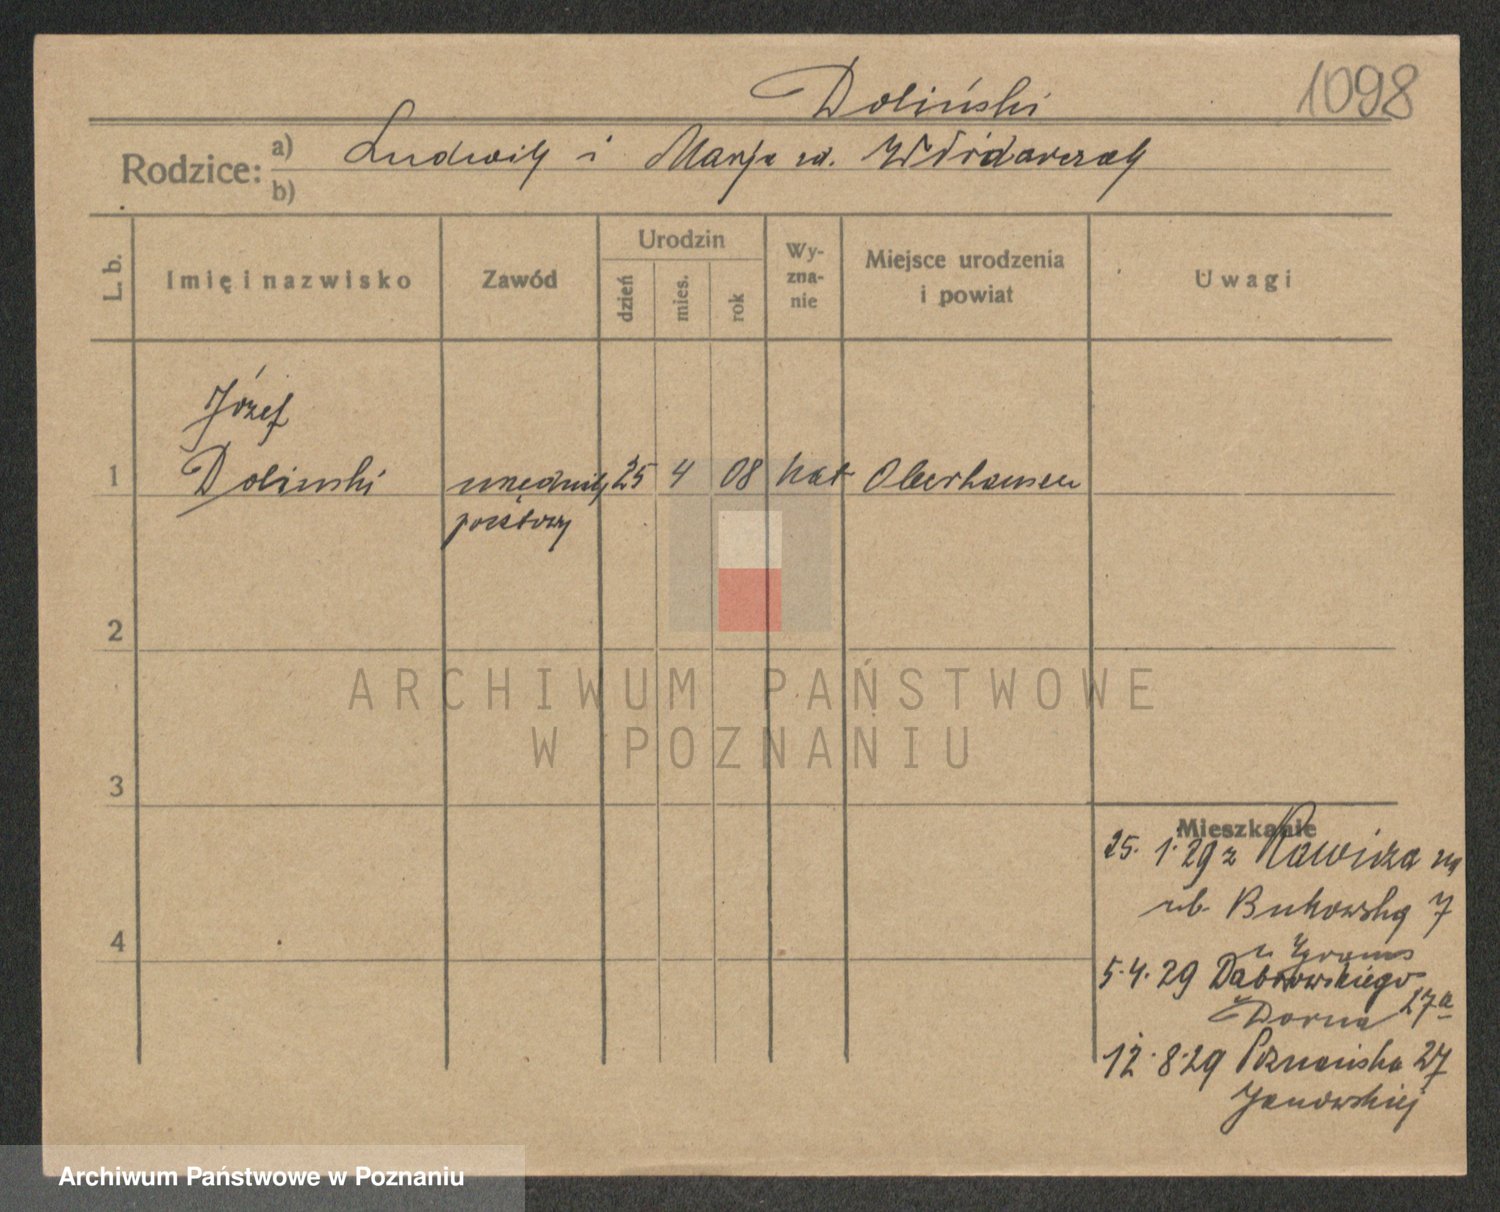 Doliński 1098
Rodzice: a) Ludwik i Marja zd. Włodarczak
b)
L. b. Imię i nazwisko Zawód Urodzin dzień mies. rok Wy-zna-nie Miejsce urodzenia i powiat Uwagi
Józef
1 Dolinski urzędnik 25 4 08 kat Oberhausen
pocztowy
2
ARCHIWUM PAŃSTWOWE
W POZNANIU
3
Mieszkanie
25. 1. 29 z Rawicza na
ul. Bukowską 7
u Grams
5. 4. 29 Dabrowskiego
Dorna 27a
12. 8. 29 Poznańska 27
Janowskiej
4
Archiwum Państwowe w Poznaniu